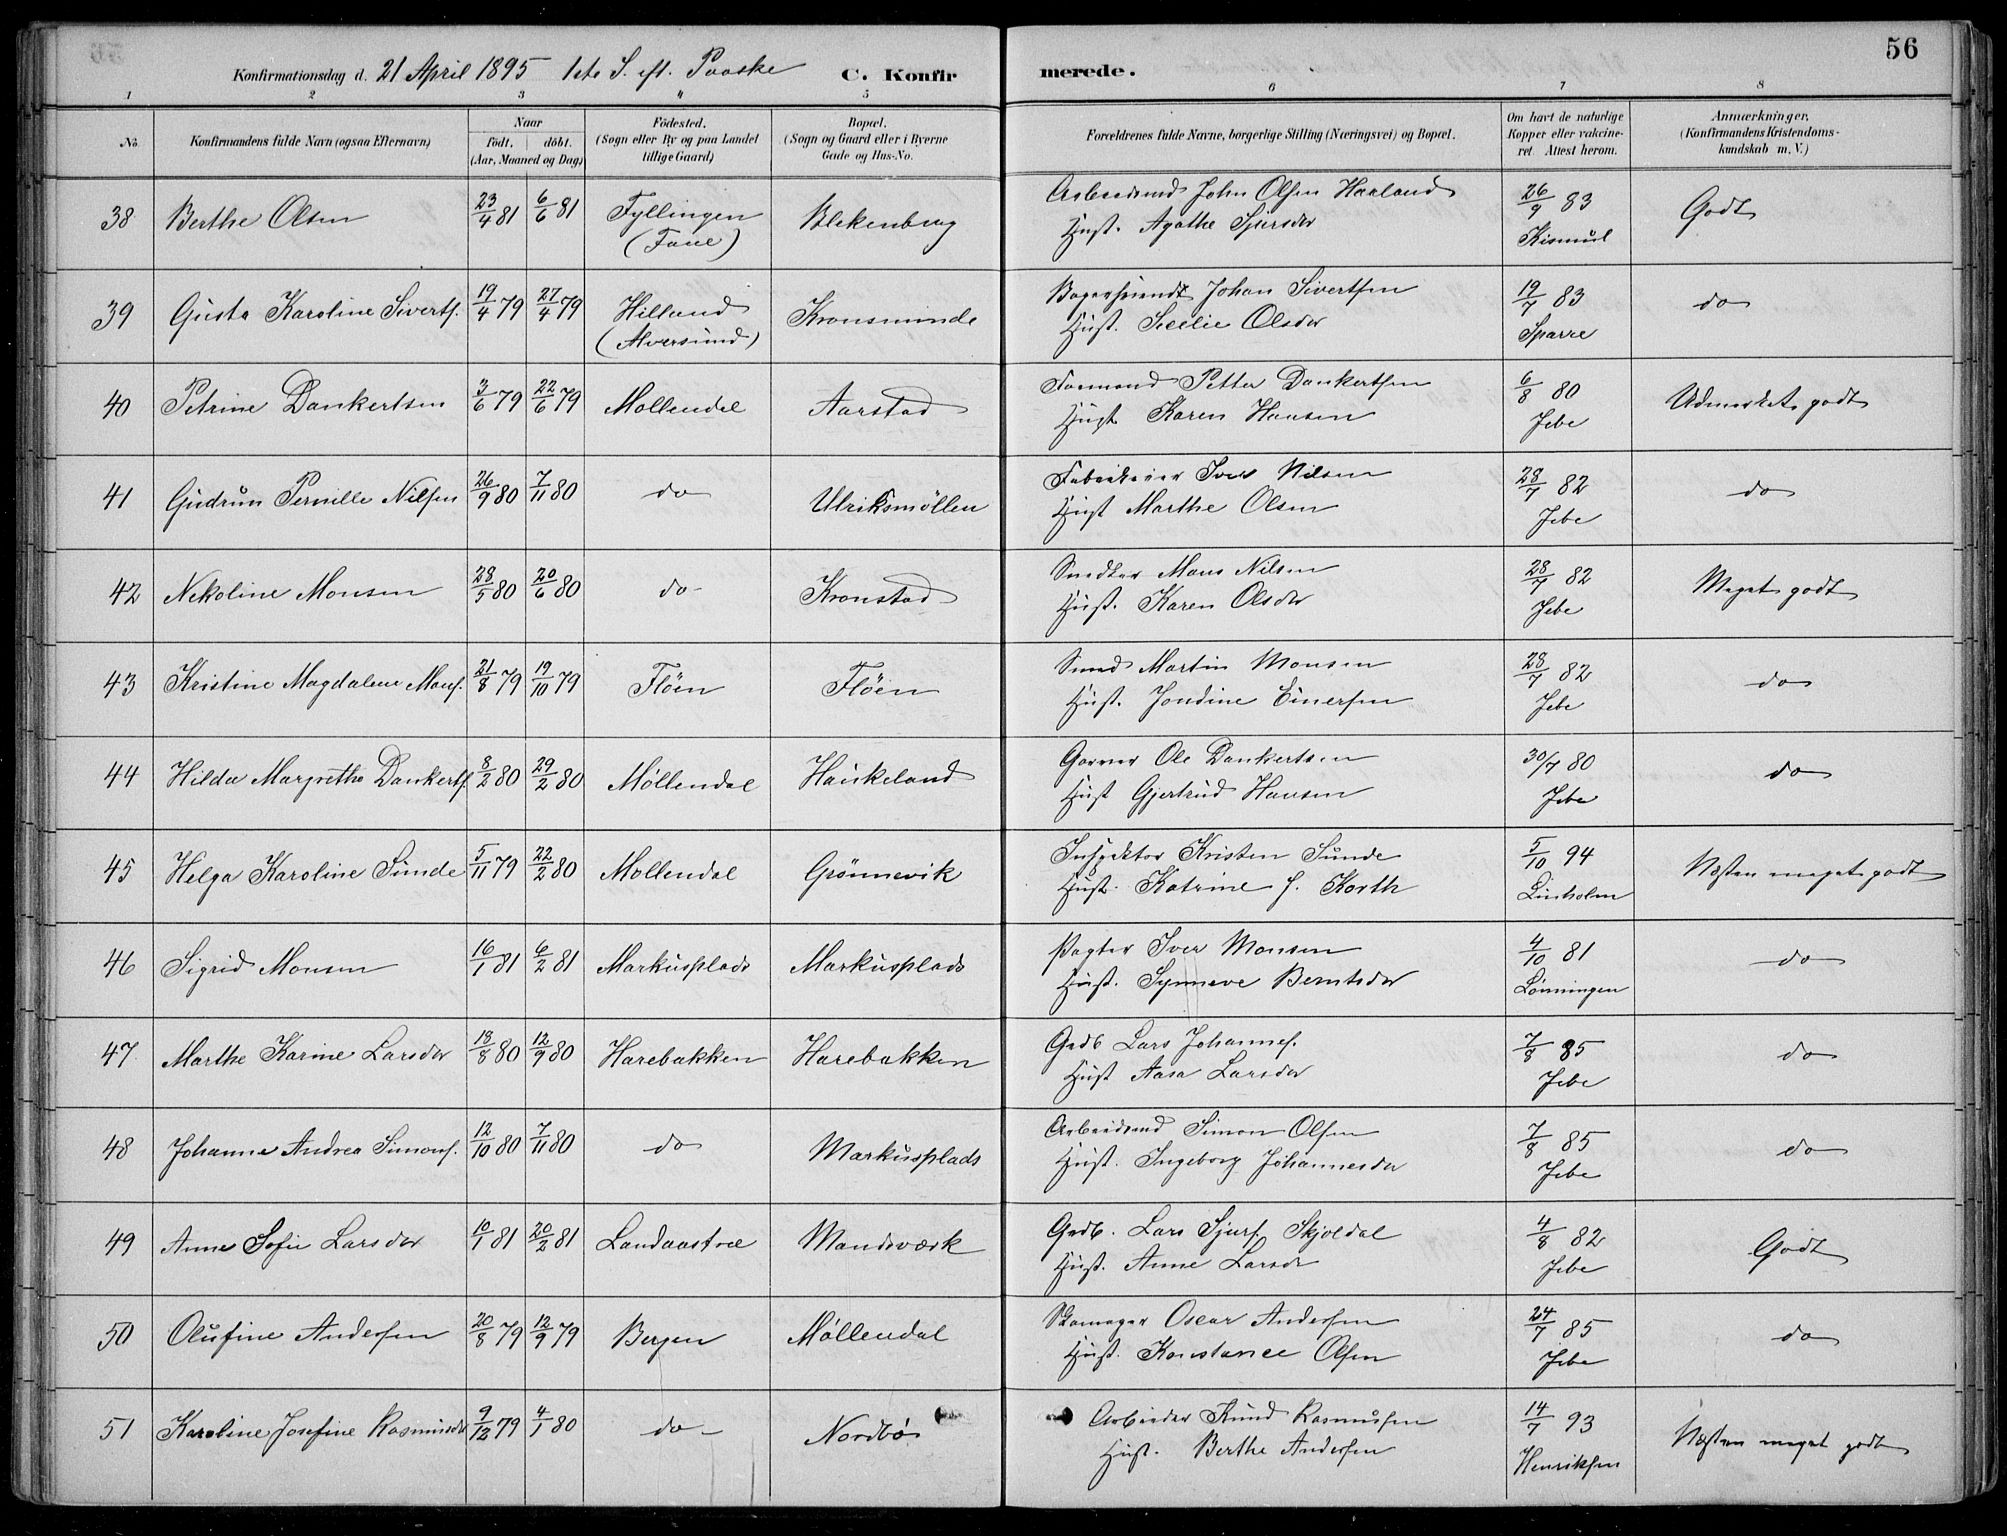 56
Konfirmationsdag d. 21 April 1895 1ste S. eft. Paaske C. Konfirmerede.
1 2 3 4 5 6 7 8
No.
Konfirmandens fulde Navn (ogsaa Efternavn)
Naar födt. döbt. (Aar, Maaned og Dag)
Födested. (Sogn eller By og paa Landet tillige Gaard)
Bopæl. (Sogn og Gaard eller i Byerne Gade og Hus-No.
Forældrenes fulde Navne, borgerlige Stilling (Næringsvei) og Bopæl.
Om havt de naturlige Kopper eller vakcineret. Attest herom.
Anmærkninger. (Konfirmandens Kristendomskundskab m. V.)
38 Berthe Olsen 23/4 81 6/6 81 Fyllingen (Fane) Blekenberg Arbeidsmd John Olsen Haaland 26/9 83 Godt
Hust. Agathe Sjursdr Kismul
39 Gusta Karoline Siverts. 19/4 79 27/4 79 Hilland (Alversund) Kronsminde Johan Sivertsen 19/7 83 do
Hust. Seelie Olsdr Sparre
40 Petrine Dankertsen 3/6 79 22/6 79 Møllendal Aarstad Formand Petter Dankertsen 6/8 80 Udmerket godt
Hust Karen Hansen Jebe
41 Gudrun Pernille Nilsen 26/9 80 7/11 80 do Ulriksmöllen Iver Nilsen 28/7 82 do
Hust Marthe Olsen Jebe
42 Nekoline Monsen 28/5 80 20/6 80 do Kronstad Snedker Mons Nilsen 28/7 82 Meget godt
Hust. Karen Olsdr Jebe
43 Kristine Magdalene Mons. 21/8 79 19/10 79 Flöen Flöen Smed Martin Monsen 28/7 82 do
Hust. Jondine Einersen Jebe
44 Hilda Margrethe Dankerts. 8/2 80 29/2 80 Møllendal Haukeland Garver Ole Dankertsen 30/7 80 do
Hust Gjertrud Hansen Jebe
45 Helga Karoline Sunde 5/11 79 22/2 80 Møllendal Grönnevik Inspektor Kristen Sunde 5/10 94 Næsten meget godt
Hust. Katrine f. Korth Linholm
46 Sigrid Monsen 16/1 81 6/2 81 Markusplads Markusplads Pagter Iver Monsen 4/10 81 do
Hust. Synneve Berntsdr Lønningen
47 Marthe Karine Larsdr 18/8 80 12/9 80 Harebakken Harebakken Grdb Lars Johannes. 7/8 85 do
Hust Aasa Larsdr Jebe
48 Johanne Andrea Simons. 12/10 80 7/11 80 do Markusplads Arbeidsmd Simon Olsen 7/8 85 do
Hust. Ingeborg Johannesdr Jebe
49 Anne Sofie Larsdr 10/1 81 20/2 81 Landaastræ Mandsværk Grdb. Lars Sjurs. Skjoldal 4/8 82 Godt
Hust. Anne Larsdr Jebe
50 Olufine Andersen 20/8 79 12/9 79 Bergen Møllendal Skomager Oscar Andersen 24/7 85 do
Hust. Konstance Olsen Jebe
51 Karoline Josefine Rasmusdr 9/12 79 4/1 80 do Nordbø Arbeider Knud Rasmussen 14/7 93 Næsten meget godt
Hust. Berthe Andersen Henriksen